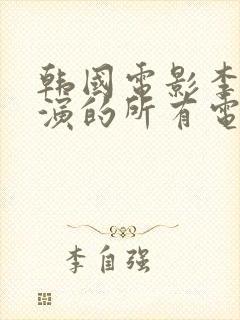 韩國電影李
演的所有電
李自强